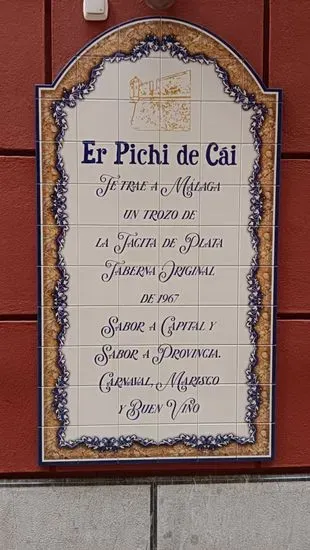 Er Pichi de Cái
Te trae a Málaga
un trozo de
la Tacita de Plata
Taberna Original
de 1967
Sabor a Capital y
Sabor a Provincia.
Carnaval, Marisco
y Buen Vino